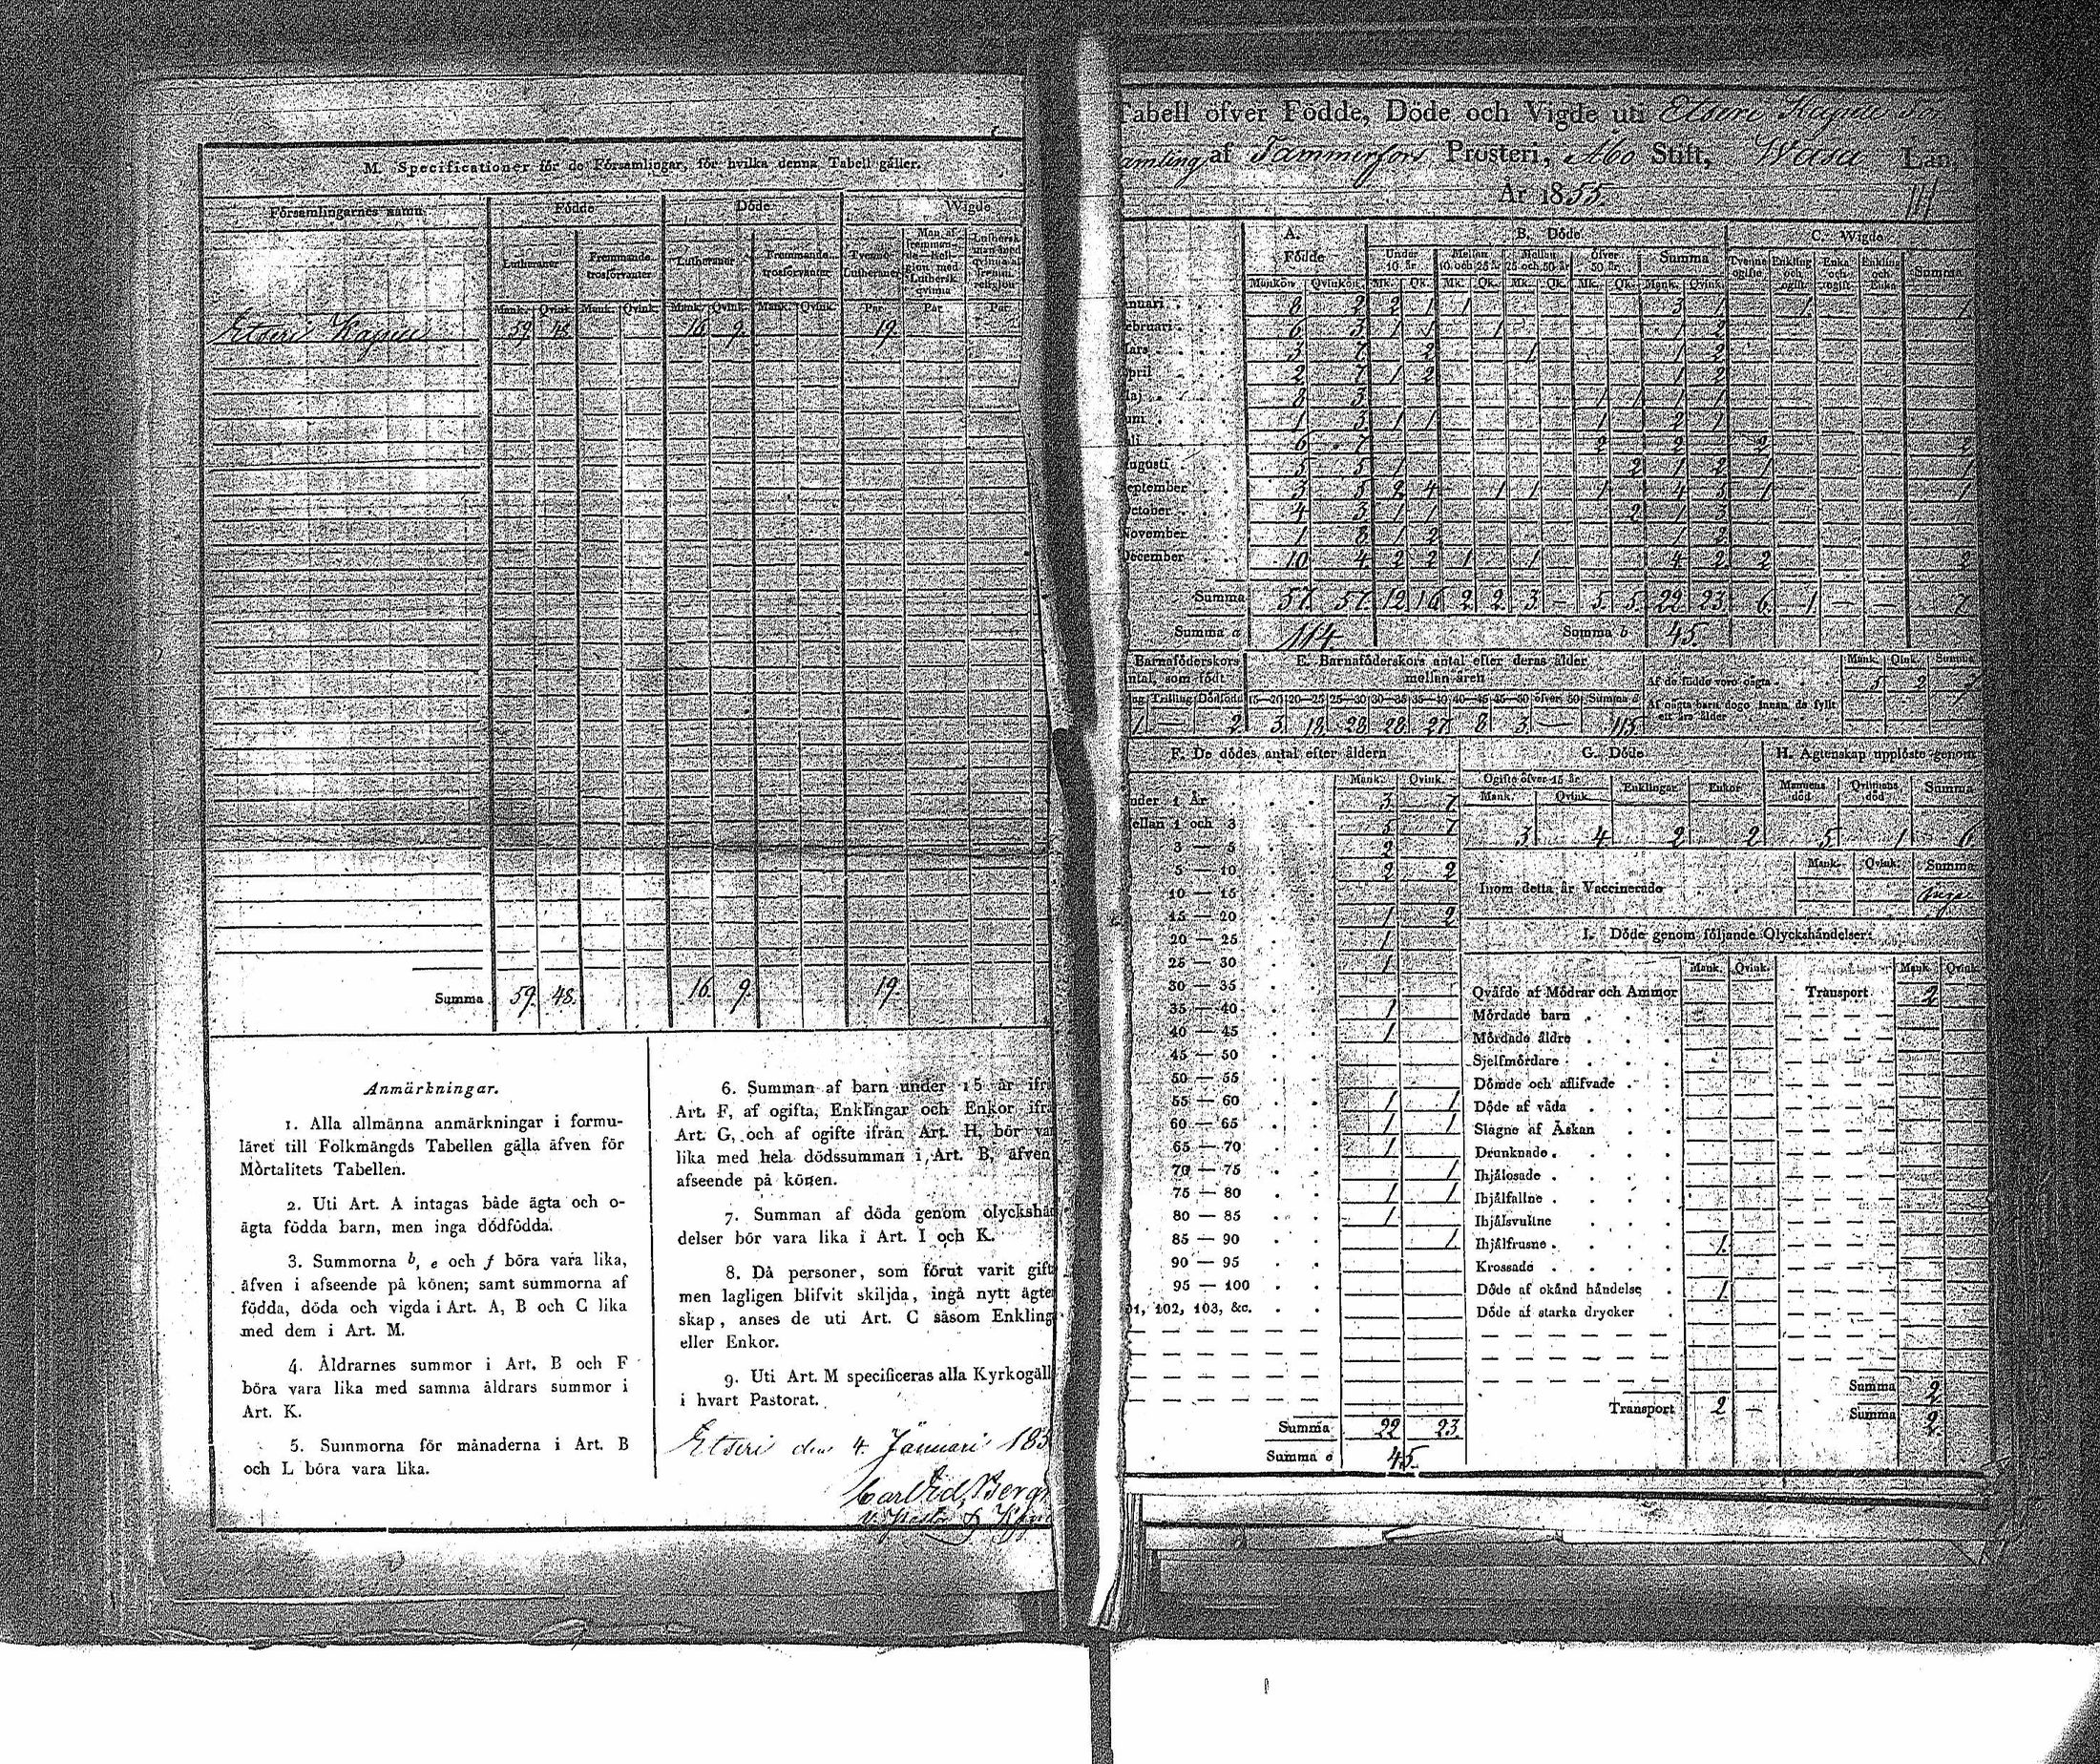 M. Specificationer för de Församlingar, för hvilka denna Tabell gäller.
Församlingarnes namn. Födde Döde Wigde
Lutheraner Fremmande trosförvanter Lutheraner Fremmande trosförvanter Tvenne Lutheraner Man af fremmande Religion med Luthersk qvinna Luthersk man med qvinna af fremm. religion
Mank. Qvink. Mank. Qvink. Mank. Qvink. Mank. Qvink. Par Par Par
Etseri 59. 48. 16. 9. 19.
Summa 59. 48. 16. 9. 19.
Anmärkningar.
1. Alla allmänna anmärkningar i formu-
läret till Folkmängds Tabellen gälla äfven för
Mortalitets Tabellen.
2. Uti Art. A intagas både ägta och o-
ägta födda barn, men inga dödfödda.
3. Summorna b, e och f böra vara lika,
äfven i afseende på könen; samt summorna af
födda, döda och vigda i Art. A, B och C lika
med dem i Art. M.
4. Åldrarnes summor i Art. B och F
böra vara lika med samma åldrars summor i
Art. K.
5. Summorna för månaderna i Art. B
och L böra vara lika.
6. Summan af barn under 15 år ifr
Art. F, af ogifta, Enklingar och Enkor ifr
Art. G, och af ogifte ifrån Art. H, bör var
lika med hela dödssumman i Art. B, äfven
afseende på könen.
7. Summan af döda genom olyckshän
delser bör vara lika i Art. I och K.
8. Då personer, som förut varit gift
men lagligen blifvit skiljda, ingå nytt ägten
skap, anses de uti Art. C såsom Enkling
eller Enkor.
9. Uti Art. M specificeras alla Kyrkogäll
i hvart Pastorat.
Etseri den 4. Januari 183
Tabell öfver Födde, Döde och Vigde uti Etseri
amling af Tammerfors Prosteri, Åbo Stift, Wasa Län,
År 1855.
A. Födde B. Döde C. Wigde
Under 10 år Mellan 10 och 25 år Mellan 25 och 50 år Öfver 50 år Summa Tvenne ogifte Enkling och ogift Enka och ogift Enkling och Enka Summa
Mankön Qvinkön Mk. Qk. Mk. Qk. Mk. Qk. Mk. Qk. Mank. Qvink.
nuari 8 2 2 1 1 3 1 1 1
ebruari 6 3 1 1 1 1 2
ars 3 7 2 1 1 2
pril 2 7 1 2 1 2
aj 8 3 1 1 1 1
uni 1 3 1 1 1 2 1
uli 6 7 2 2 2 2
ugusti 5 5 1 2 1 2 1 1
eptember 3 5 2 4 1 1 1 4 5 1 1
ctober 4 3 1 1 2 1 3
November 1 8 1 2 1 2
December 10 4 2 2 1 1 4 2 2 2
Summa 57. 57. 12 16 2. 2. 3. — 5. 5. 22. 23. 6. 1. — — 7.
Summa a 114. Summa b 45.
Barnaföderskors
antal, som födt
E. Barnaföderskors antal efter deras ålder
mellan åren
Af de födde voro oägta Mank. Qink. Summa
5 2 7
Af oägta barn dogo innan de fyllt
ett års ålder
ng Trilling Dödfödd 15—20 20—25 25—30 30—35 35—40 40—45 45—50 öfver 50 Summa d
1. — 2. 3. 18. 28. 28. 27. 8. 3. — 115.
F. De dödes antal efter åldern
Mank. Qvink.
nder 1 År 3 7
ellan 1 och 3 5 7
3 — 5 2
5 — 10 2 2
10 — 15
15 — 20 1 2
20 — 25 1
25 — 30 1
30 — 35
35 — 40 1
40 — 45 1
45 — 50
50 — 55
55 — 60 1 1
60 — 65 1 1
65 — 70 1
70 — 75 1
75 — 80 1 1
80 — 85 1
85 — 90 1
90 — 95
95 — 100
01, 102, 103, &c.
Summa 22 23.
Summa e 45.
G. Döde H. Ägtenskap upplöste genom
Ogifte öfver 15 år Enklingar Enkor Mannens död Qvinnans död Summa
Mank. Qvink.
3 4 2 2 5 1 6
Mank. Qvink. Summa
Inom detta år Vaccinerade inga
I. Döde genom följande Olyckshändelser:
Mank. Qvink. Mank. Qvink
Qväfde af Mödrar och Ammor Transport 2
Mördade barn
Mördade äldre
Sjelfmördare
Dömde och aflifvade
Döde af våda
Slagne af Åskan
Drunknade
Ihjälosade
Ihjälfallne
Ihjälsvultne
Ihjälfrusne 1.
Krossade
Döde af okänd händelse 1.
Döde af starka drycker
Summa 2
Transport 2 — Summa 2.